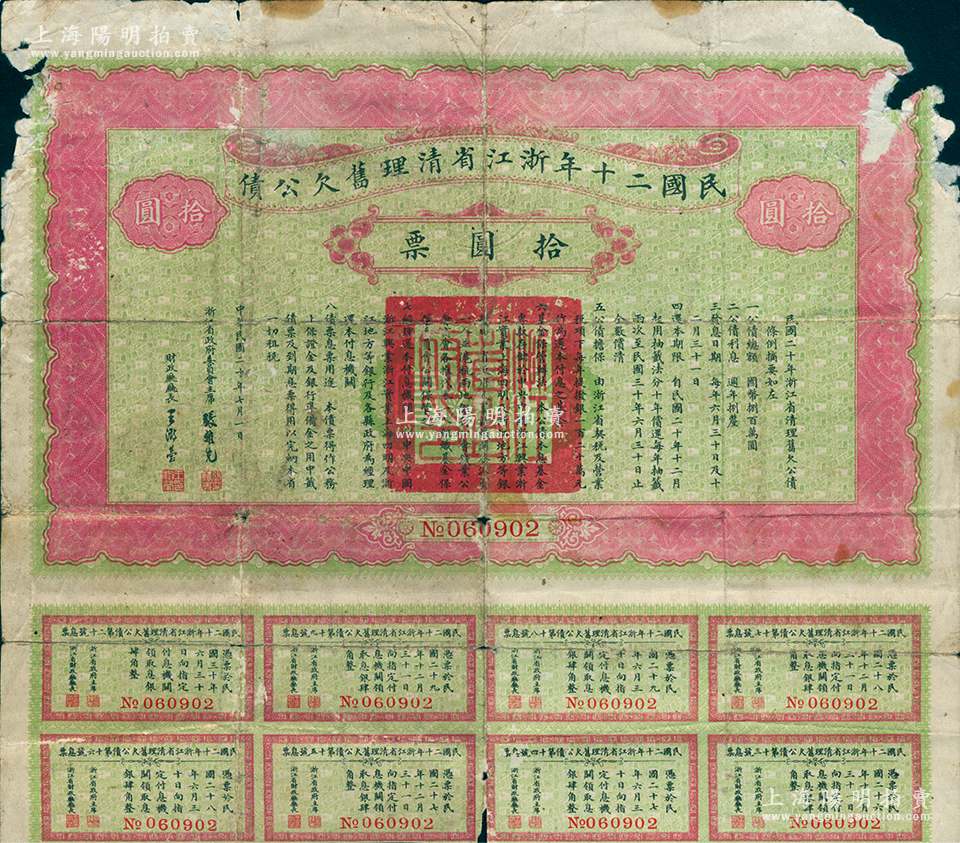 上海陽明拍賣
www.yangmingauction.com
民國二十年浙江省清理舊欠公債
拾圓
拾圓
拾圓票
民國二十年浙江省清理舊欠公債
條例摘要如左
一公債總額 國幣捌百萬圓
二公債利息 週年捌釐
三發息日期 每年六月三十日及十
二月三十一日
四還本期限 自民國二十年十二月
起用抽籤法分十年償還每年抽籤
兩次至民國三十年六月三十日止
全數償清
五公債擔保 由浙江省契稅及營業
稅項下每年提撥銀一百
十萬元
作為還本付息之
本公
基金
江
地方等銀
八債票用途 本債票得作公務
上保證金及銀行準備金之用中籤
債票及到期息票得用以完納本省
一切租稅
江地方等銀行及各縣政府為經理
還本付息機關
中華民國二十年七月一日
浙江省政府委員會主席 張難先
財政廳廳長 王澂瑩
上海陽明拍賣
www.yangmingauction.com
№060902
民國二十年浙江省清理舊欠公債第十七號息票
憑票於民
國二十八
年十二月
三十一日
向指定付
息機關領
取息銀肆
角整
浙江省政府主席
浙江省財政廳廳長
№060902
民國二十年浙江省清理舊欠公債第十八號息票
憑票於民
國二十九
年六月三
十日向指
定付息機
關領取息
銀肆角整
浙江省政府主席
浙江省財政廳廳長
№060902
民國二十年浙江省清理舊欠公債第十九號息票
憑票於民
國二十九
年十二月
三十一日
向指定付
息機關領
取息銀肆
角整
浙江省政府主席
浙江省財政廳廳長
№060902
民國二十年浙江省清理舊欠公債第二十號息票
憑票於民
國三十年
六月三十
日向指定
付息機關
領取息銀
肆角整
浙江省政府主席
浙江省財政廳廳長
№060902
民國二十年浙江省清理舊欠公債第十三號息票
憑票於民
國二十六
年十二月
三十一日
向指定付
息機關領
取息銀肆
角整
浙江省政府主席
浙江省財政廳廳長
№060902
民國二十年浙江省清理舊欠公債第十四號息票
憑票於民
國二十七
年六月三
十日向指
定付息機
關領取息
銀肆角整
浙江省政府主席
浙江省財政廳廳長
№060902
民國二十年浙江省清理舊欠公債第十五號息票
憑票於民
國二十七
年十二月
三十一日
向指定付
息機關領
取息銀肆
角整
浙江省政府主席
浙江省財政廳廳長
№060902
民國二十年浙江省清理舊欠公債第十六號息票
憑票於民
國二十八
年六月三
十日向指
定付息機
關領取息
銀肆角整
浙江省政府主席
浙江省財政廳廳長
№060902
上海陽明拍賣
www.yangmingauction.com